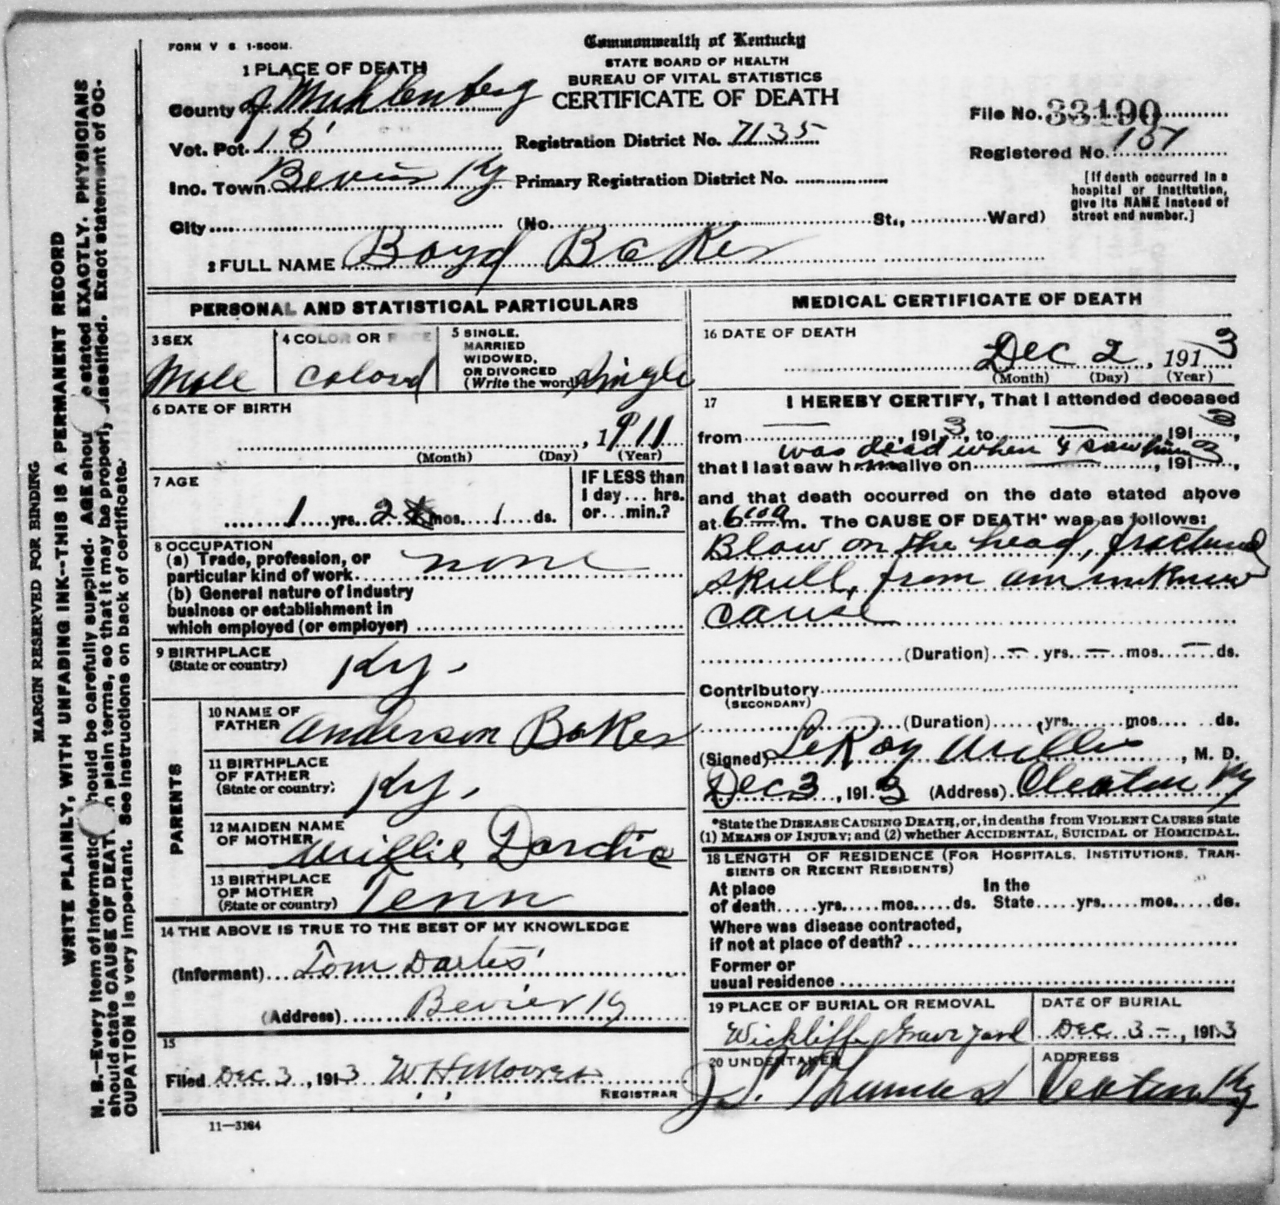 FORM V S 1-500M.
Commonwealth of Kentucky
STATE BOARD OF HEALTH
BUREAU OF VITAL STATISTICS
CERTIFICATE OF DEATH
1 PLACE OF DEATH
County Muhlenberg
Vot. Pct. 15
Inc. Town Bevier Ky
City (No. St., Ward)
Registration District No. 7135
Primary Registration District No.
File No. 33190
Registered No. 157
[If death occurred in a hospital or institution, give its NAME instead of street and number.]
2 FULL NAME Boyd Baker
PERSONAL AND STATISTICAL PARTICULARS
3 SEX
Male
4 COLOR OR RACE
Colored
5 SINGLE,
MARRIED
WIDOWED,
OR DIVORCED
(Write the word) Single
6 DATE OF BIRTH
, 1911
(Month) (Day) (Year)
7 AGE
1 yrs. 2 mos. 1 ds.
IF LESS than
1 day ... hrs.
or ... min.?
8 OCCUPATION
(a) Trade, profession, or
particular kind of work none
(b) General nature of industry
business or establishment in
which employed (or employer)
9 BIRTHPLACE
(State or country) Ky.
PARENTS
10 NAME OF
FATHER Anderson Baker
11 BIRTHPLACE
OF FATHER
(State or country) Ky.
12 MAIDEN NAME
OF MOTHER Millie
13 BIRTHPLACE
OF MOTHER
(State or country) Tenn
14 THE ABOVE IS TRUE TO THE BEST OF MY KNOWLEDGE
(Informant) Tom
(Address) Bevier Ky
15
Filed Dec 3, 1913 W H Moores
REGISTRAR
11—3184
MEDICAL CERTIFICATE OF DEATH
16 DATE OF DEATH
Dec 2, 1913
(Month) (Day) (Year)
17 I HEREBY CERTIFY, That I attended deceased
from — , 1913, to — 1913,
was dead when I saw him
that I last saw him alive on — , 1913,
and that death occurred on the date stated above
at 6 00 a m. The CAUSE OF DEATH* was as follows:
Blow on the head, fractured
skull, from an unknown
cause
(Duration) — yrs. — mos. — ds.
Contributory
(SECONDARY)
(Duration) yrs. mos. ds.
(Signed) LeRoy Willis, M. D.
Dec 3, 1913 (Address) Cleaton Ky
*State the DISEASE CAUSING DEATH, or, in deaths from VIOLENT CAUSES state
(1) MEANS OF INJURY; and (2) whether ACCIDENTAL, SUICIDAL or HOMICIDAL.
18 LENGTH OF RESIDENCE (FOR HOSPITALS, INSTITUTIONS, TRAN-
SIENTS OR RECENT RESIDENTS)
At place In the
of death yrs. mos. ds. State yrs. mos. ds.
Where was disease contracted,
if not at place of death?
Former or
usual residence
19 PLACE OF BURIAL OR REMOVAL
Wickliffe Grave Yard
DATE OF BURIAL
Dec 3 —, 1913
20 UNDERTAKER
ADDRESS
Cleaton Ky
MARGIN RESERVED FOR BINDING
WRITE PLAINLY, WITH UNFADING INK--THIS IS A PERMANENT RECORD
N. B.—Every item of information should be carefully supplied. AGE should be stated EXACTLY. PHYSICIANS
should state CAUSE OF DEATH in plain terms, so that it may be properly classified. Exact statement of OC-
CUPATION is very important. See instructions on back of certificate.